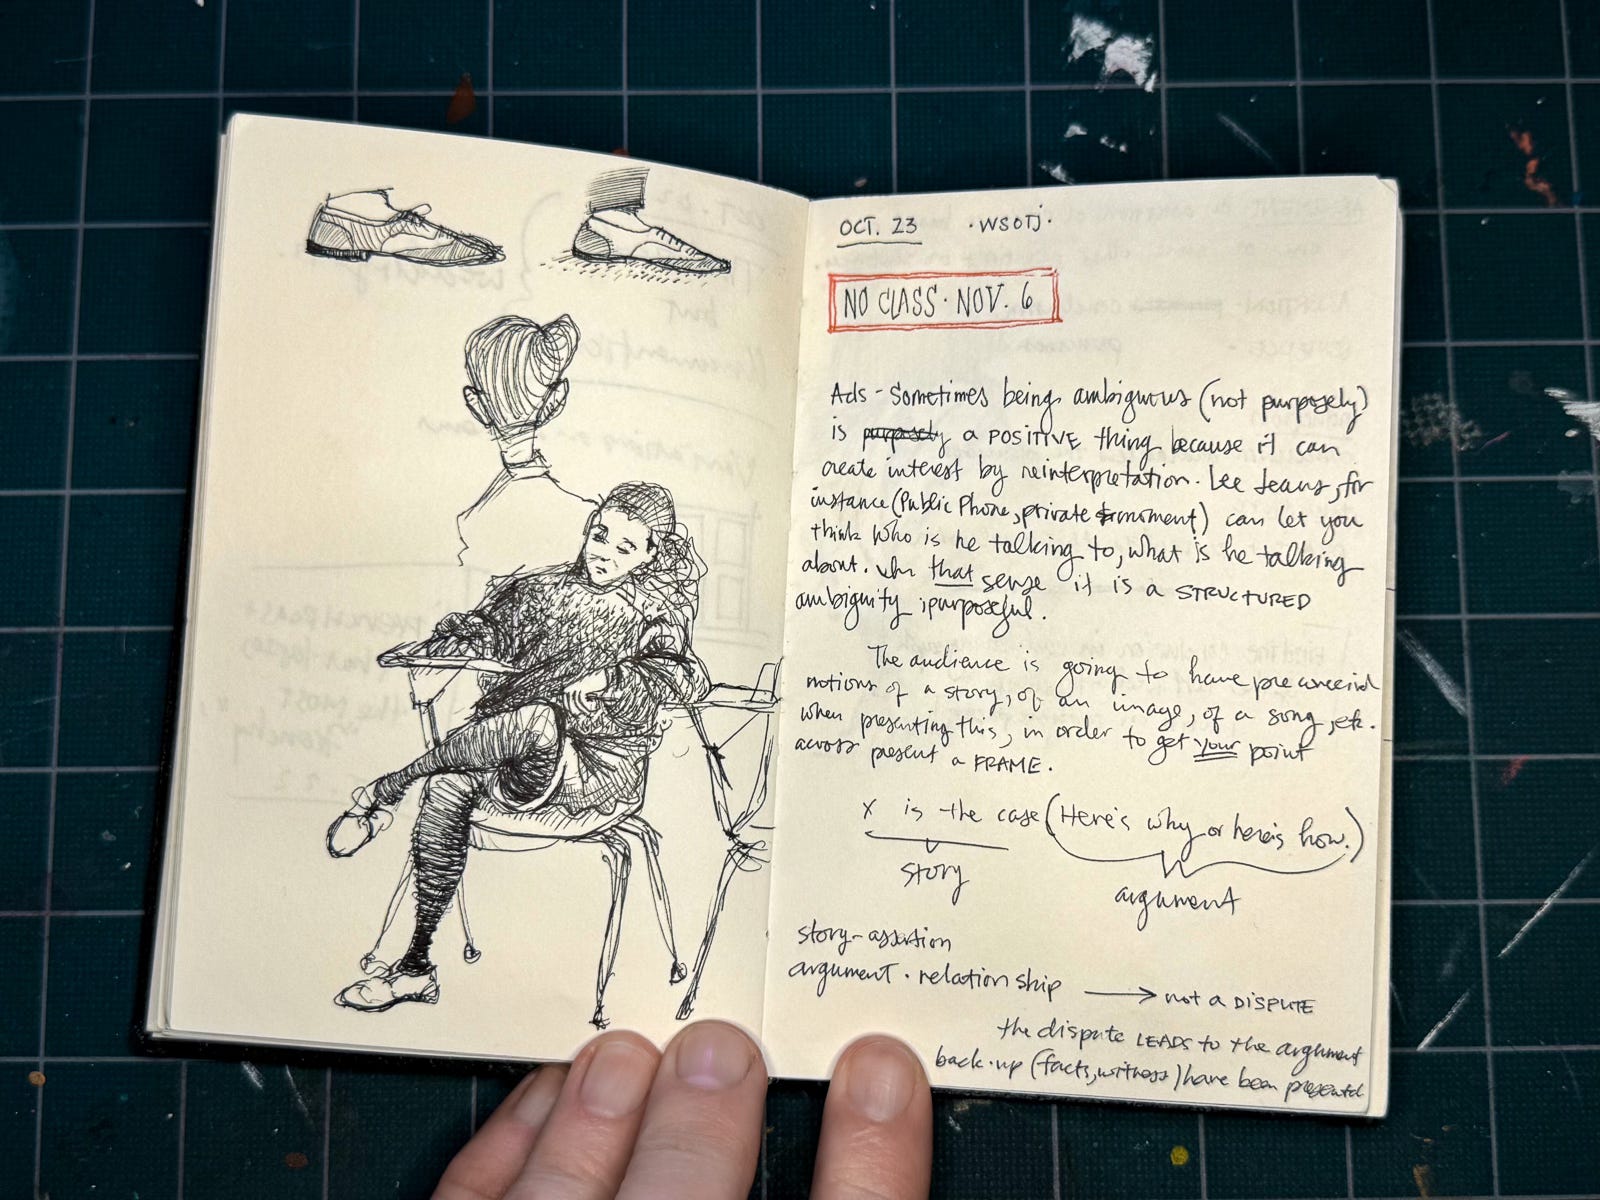 OCT. 23 · WSOTJ·
NO CLASS · NOV. 6
Ads - Sometimes being ambiguous (not purposely)
is purposely a POSITIVE thing because it can
create interest by reinterpretation. Lee Jeans, for
instance (Public Phone, private moment) can let you
think who is he talking to, what is he talking
about. In that sense it is a STRUCTURED
ambiguity, purposeful.
The audience is going to have preconceived
notions of a story, of an image, of a song, etc.
when presenting this, in order to get your point
across present a FRAME.
X is the case (Here's why or here's how.)
story
argument
story - assertion
argument · relationship → not a DISPUTE
the dispute LEADS to the argument
back-up (facts, witness) have been presented